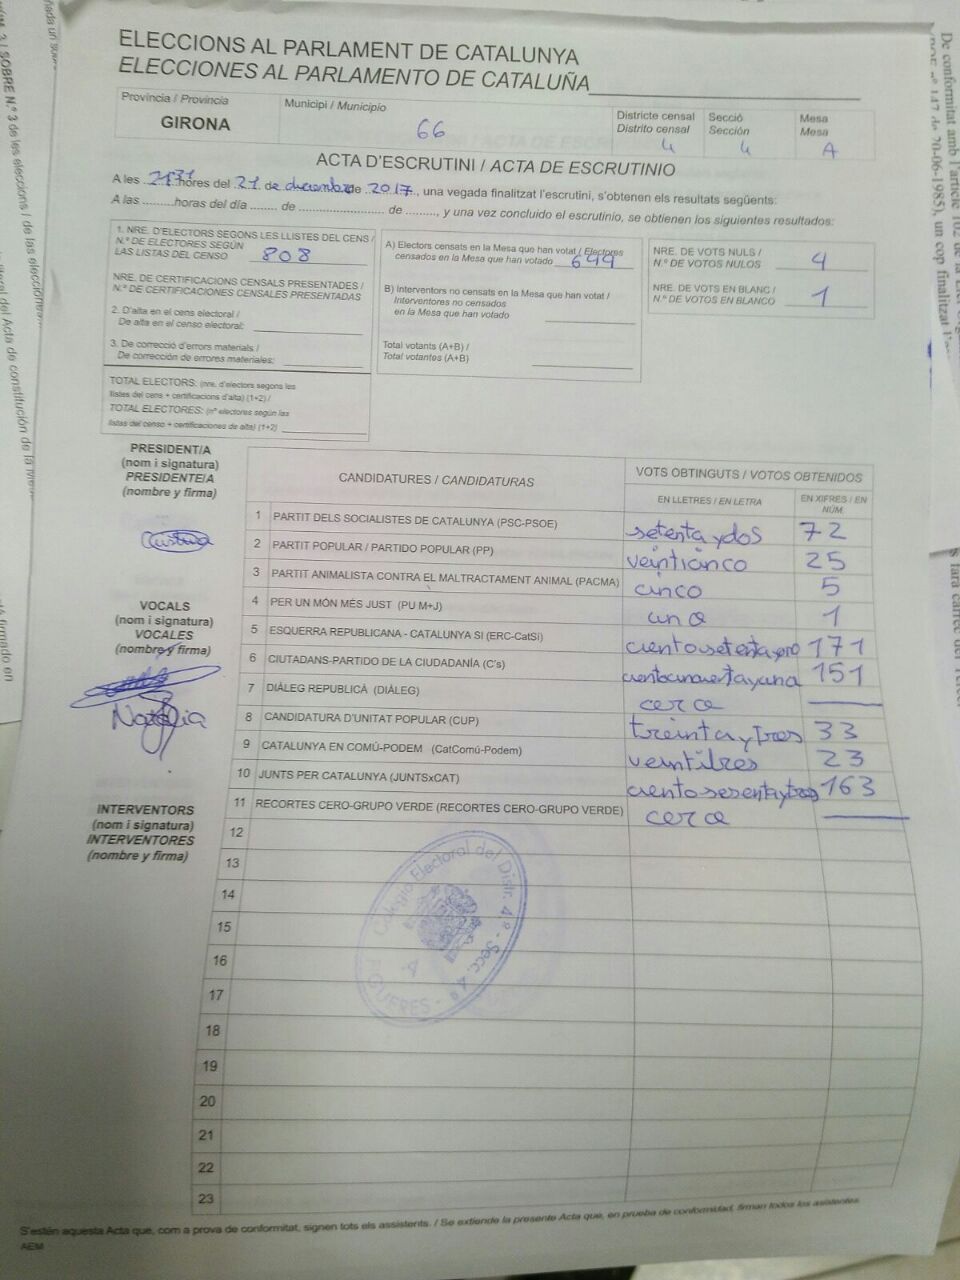 ELECCIONS AL PARLAMENT DE CATALUNYA
ELECCIONES AL PARLAMENTO DE CATALUÑA
Provincia / Provincia
GIRONA
Municipi / Municipio
66
Districte censal
Distrito censal
4
Secció
Sección
4
Mesa
Mesa
A
ACTA D'ESCRUTINI / ACTA DE ESCRUTINIO
A les hores del 21 de diciembre de 2017, una vegada finalitzat l'escrutini, s'obtenen els resultats següents:
A las .........horas del día ........ de ......................... de ........, y una vez concluido el escrutinio, se obtienen los siguientes resultados:
1. NRE. D'ELECTORS SEGONS LES LLISTES DEL CENS /
N.º DE ELECTORES SEGÚN
LAS LISTAS DEL CENSO 808
NRE. DE CERTIFICACIONS CENSALS PRESENTADES /
N.º DE CERTIFICACIONES CENSALES PRESENTADAS
2. D'alta en el cens electoral /
De alta en el censo electoral:
3. De correcció d'errors materials /
De corrección de errores materiales:
TOTAL ELECTORS: (nre. d'electors segons les
llistes del cens + certificacions d'alta) (1+2) /
TOTAL ELECTORES: (nº electores según las
listas del censo + certificaciones de alta) (1+2)
A) Electors censats en la Mesa que han votat / Electores
censados en la Mesa que han votado 649
B) Interventors no censats en la Mesa que han votat /
Interventores no censados
en la Mesa que han votado
Total votants (A+B) /
Total votantes (A+B)
NRE. DE VOTS NULS /
N.º DE VOTOS NULOS 4
NRE. DE VOTS EN BLANC /
N.º DE VOTOS EN BLANCO 1
PRESIDENT/A
(nom i signatura)
PRESIDENTE/A
(nombre y firma)
Cristina
VOCALS
(nom i signatura)
VOCALES
(nombre y firma)
Natalia
INTERVENTORS
(nom i signatura)
INTERVENTORES
(nombre y firma)
CANDIDATURES / CANDIDATURAS
VOTS OBTINGUTS / VOTOS OBTENIDOS
EN LLETRES / EN LETRA
EN XIFRES / EN NÚM.
1 PARTIT DELS SOCIALISTES DE CATALUNYA (PSC-PSOE) setenta y dos 72
2 PARTIT POPULAR / PARTIDO POPULAR (PP) veinticinco 25
3 PARTIT ANIMALISTA CONTRA EL MALTRACTAMENT ANIMAL (PACMA) cinco 5
4 PER UN MÓN MÉS JUST (PU M+J) uno 1
5 ESQUERRA REPUBLICANA - CATALUNYA SI (ERC-CatSí) ciento setenta y uno 171
6 CIUTADANS-PARTIDO DE LA CIUDADANÍA (C's) ciento cincuenta y uno 151
7 DIÀLEG REPUBLICÀ (DIÀLEG) cero
8 CANDIDATURA D'UNITAT POPULAR (CUP) treinta y tres 33
9 CATALUNYA EN COMÚ-PODEM (CatComú-Podem) veintitres 23
10 JUNTS PER CATALUNYA (JUNTSxCAT) ciento sesenta y tres 163
11 RECORTES CERO-GRUPO VERDE (RECORTES CERO-GRUPO VERDE) cero
12
13
14
15
16
17
18
19
20
21
22
23
Colegio Electoral del Distr. 4º - Secc. 4ª
A
FIGUERES
S'estén aquesta Acta que, com a prova de conformitat, signen tots els assistents. / Se extiende la presente Acta que, en prueba de conformidad, firman todos los asistentes.
AEM